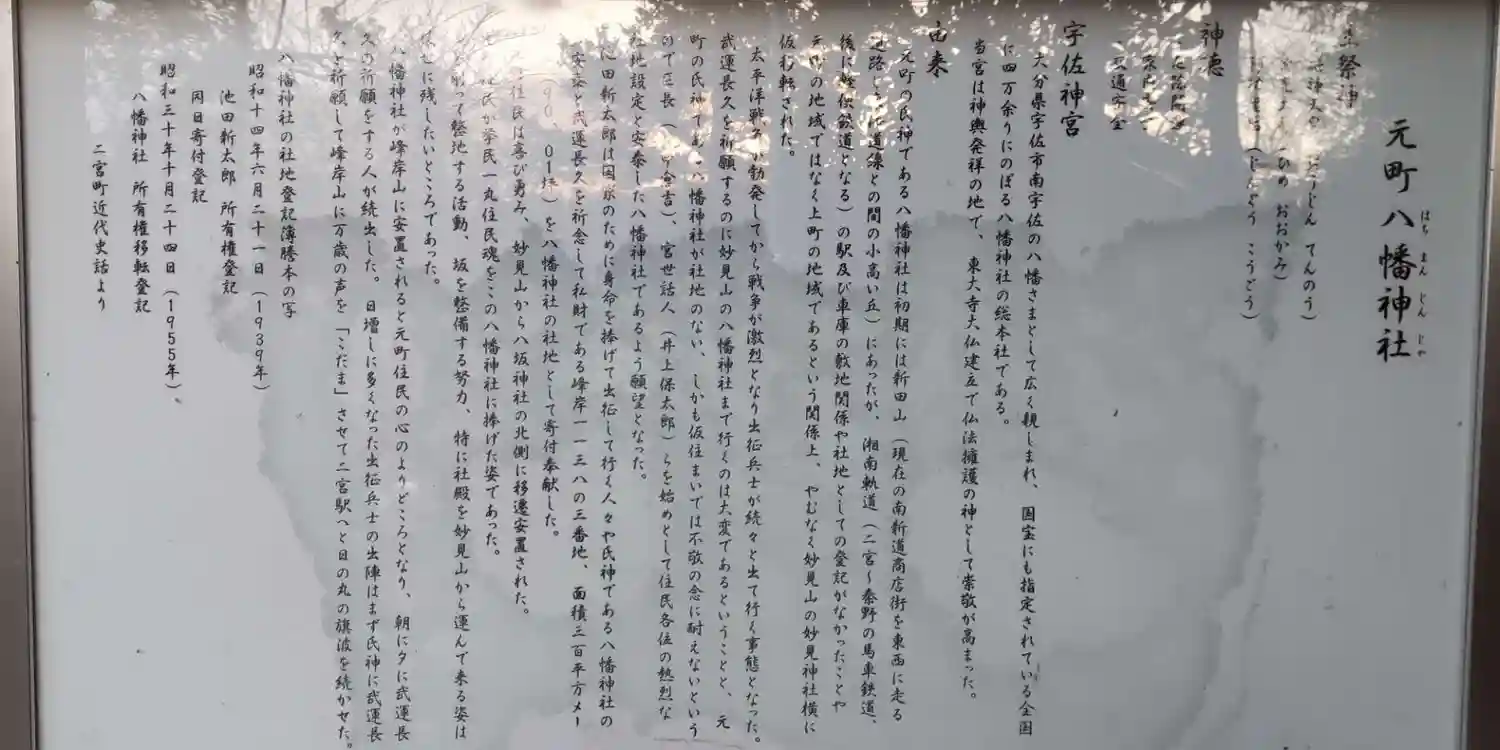 元町八幡神社
はち まん じん じゃ
祭神
てんのう)
ひめ おおかみ)
(じんぐう こうごう)
神徳
交通安全
宇佐神宮
大分県宇佐市南宇佐の八幡さまとして広く親しまれ、国宝にも指定されている全国
に四万余りにのぼる八幡神社の総本社である。
当宮は神輿発祥の地で、東大寺大仏建立で仏法擁護の神として崇敬が高まった。
由来
元町の氏神である八幡神社は初期には新田山(現在の南新道商店街を東西に走る
道路と湘南軌道(二宮~秦野の馬車鉄道、
後に軽便鉄道となる)の駅及び車庫の敷地関係や社地としての登記がなかったことや
元町の地域ではなく上町の地域であるという関係上、やむなく妙見山の妙見神社横に
仮移転された。
太平洋戦争が勃発してから戦争が激烈となり出征兵士が続々と出て行く事態となった。
武運長久を祈願するのに妙見山の八幡神社まで行くのは大変であるということと、元
町の氏神である八幡神社が社地のない、しかも仮住まいでは不敬の念に耐えないという
ので区長 宮世話人(井上保太郎)らを始めとして住民各位の熱烈な
社地設定と安泰した八幡神社であるよう願望となった。
池田新太郎は国家のために身命を捧げて出征して行く人々や氏神である八幡神社の
安泰と武運長久を祈念して私財である峰岸一一三八の三番地、面積三百平方メー
01坪)を八幡神社の社地として寄付奉献した。
住民は喜び勇み、妙見山から八坂神社の北側に移遷安置された。
住民が挙民一丸住民魂をこの八幡神社に捧げた姿であった。
って整地する活動、坂を整備する努力、特に社殿を妙見山から運んで来る姿は
に残したいところであった。
八幡神社が峰岸山に安置されると元町住民の心のよりどころとなり、朝に夕に武運長
久の祈願をする人が続出した。日増しに多くなった出征兵士の出陣はまず氏神に武運長
久を祈願して峰岸山に万歳の声を「こだま」させて二宮駅へと日の丸の旗波を続かせた。
八幡神社の社地登記簿謄本の写
昭和十四年六月二十一日(1939年)
池田新太郎 所有権登記
同日寄付登記
昭和三十年十月二十四日(1955年)、
八幡神社 所有権移転登記
二宮町近代史話より